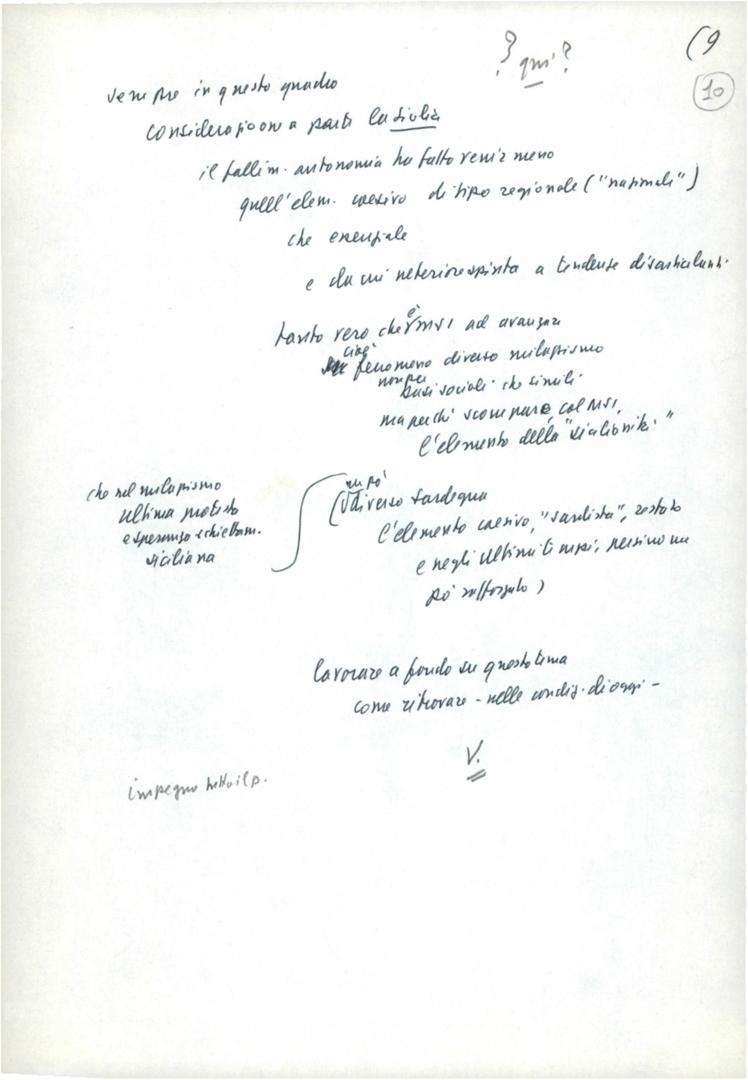 ? qui ?
(9
10
sempre in questo quadro
considerazione a parte la Sicilia
il fallim. autonomia ha fatto venir meno
quell'elem. coesivo di tipo regionale ("nazionale")
che essenziale
e da cui ulteriore spinta a tendenze disarticolanti.
tanto vero che è MSI ad avanzare
cioè fenomeno diverso milazzismo
non per basi sociali che simili
ma perché scompare, col MSI,
l'elemento della "sicilianità"
che nel milazzismo
ultima protesta
e speranza schiettam.
siciliana
(un po' diverso Sardegna
l'elemento coesivo, "sardista", restato
e negli ultimi tempi, persino un
po' rafforzato)
lavorare a fondo su questo tema
come ritrovare - nelle condiz. di oggi -
V.
impegno tutto il p.